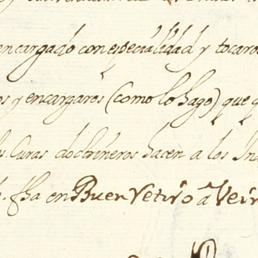 encargado con especialidad y tocaros
os y encargaros (como lo hago) que
Curas doctrineros hacen a los In
fha en Buen Retiro a Vein